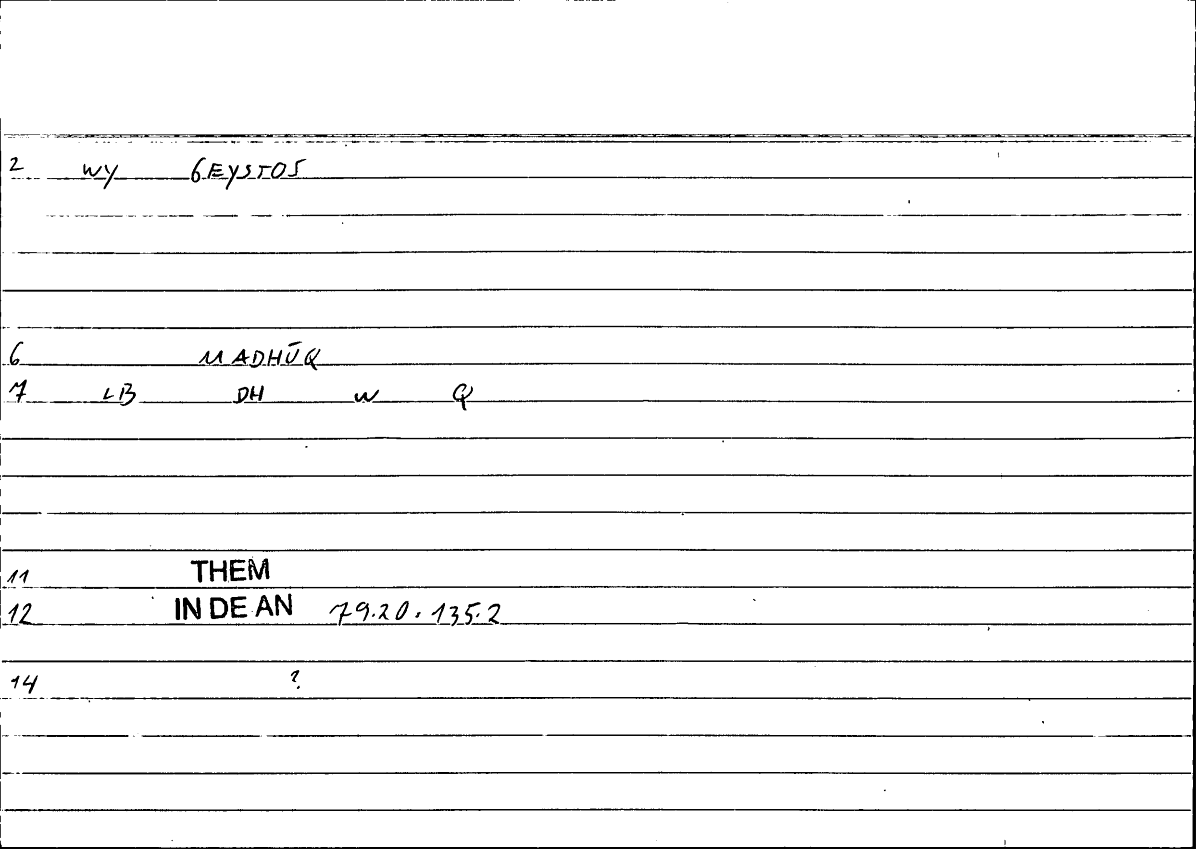 2 WY GEYSTOS
6 MADHŪQ
7 LB DH W Q
11 THEM
12 IN DE AN 79.20.135.2
14 ?